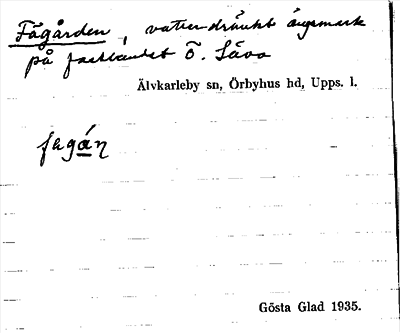 Fägården, vattendränkt ängsmark
på fastlandet Ö. Sävo
Älvkarleby sn, Örbyhus hd, Upps. l.
fęgán
Gösta Glad 1935.